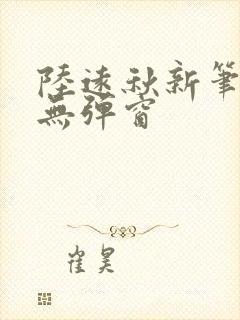 陸遠秋新筆
無彈窗
崔昊